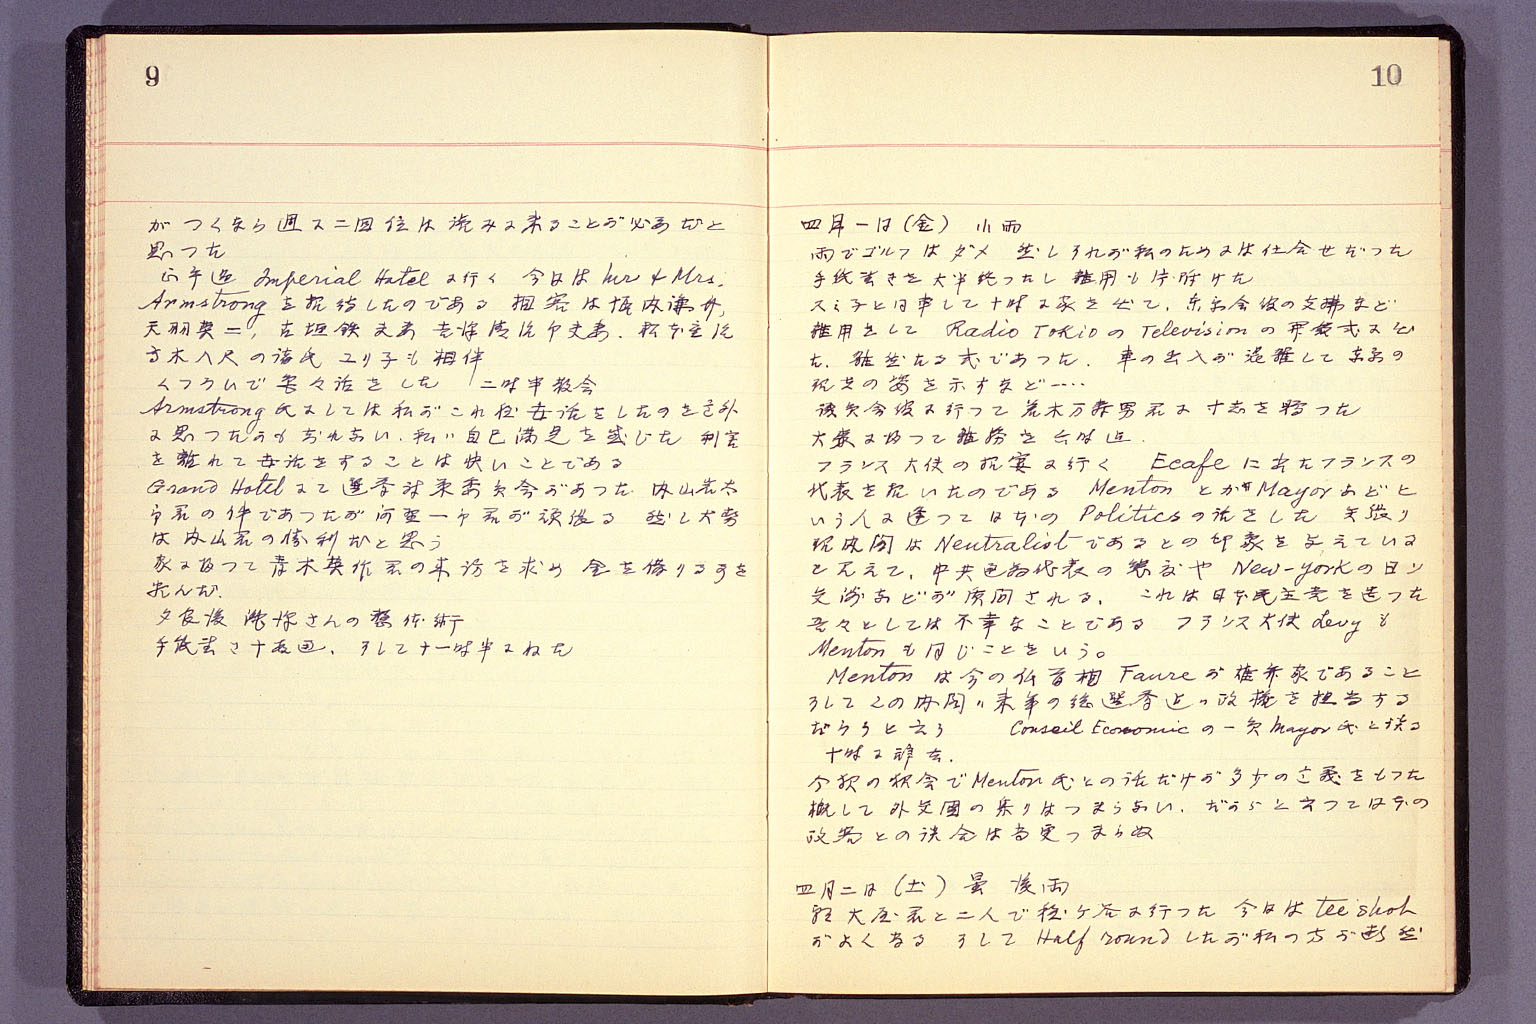 9
がつくなら週に二回位は読みに来ることが必要だと
思つた
正午過 Imperial Hotel に行く 今日は Mr & Mrs.
Armstrong を招待したのである 相客は堀内謙介,
天羽英二, 夫妻 夫妻.
の諸氏 ユリ子も相伴
くつろいで 話をした 二時半散会
Armstrong 氏にしては私がこれ程世話をしたのを意外
に思つたのかもしれない. 私ハ自己満足を感じた 利害
を離れて世話をすることは快いことである
Grand Hotel にて選挙対策委員会があつた 内山岩太
郎君の件であつたが河野一郎君が頑張る 然し大勢
は内山君の勝利だと思う
家に帰つて青木 君の来訪を求め 金を借りる事を
頼んだ.
夕食後 さんの
手紙書き十数通. そして十一時半にねた
10
四月一日(金) 小雨
雨でゴルフはダメ 然しそれが私のためには仕合せだつた
手紙書きを大半終つたし 雑用も片附けた
スミ子と同車して十時に家を出て. 会館の支払など
雑用をして Radio Tokio の Television の開幕式に出
た. 雑然たる式であつた. 車の出入が混雑して の
現在の姿を示すなど‥‥
議員会館に行つて荒木万寿男君に を贈つた
大森に帰つて雑務を六時迄.
フランス大使の招宴に行く Ecafe に出たフランスの
代表を招いたのである Menton とか Mayor などと
いう人に逢つて日本の Politics の話をした 矢張り
現内閣は Neutralist であるとの印象を与えている
と見えて, 中共 代表の や New-york の日ソ
交渉などが質問される. これは日本民主党を造つた
吾々としては不幸なことである フランス大使 Levy も
Menton も同じことをいう。
Menton は今の仏首相 Faure が雄弁家であること
そしてこの内閣ハ来年の総選挙迄ハ政権を担当する
だろうと云う Conseil Economic の一員 Mayor 氏と語る
十時に辞去.
今夜の宴会で Menton 氏との話だけが多少の意義をもつた
概して外交団の集りはつまらない. だからと云つて日本の
政客との談合は尚更つまらぬ
四月二日(土) 曇 後雨
君と二人で程ケ谷に行つた 今日は tee shot
がよく当る そして Half round したが私の方が断然